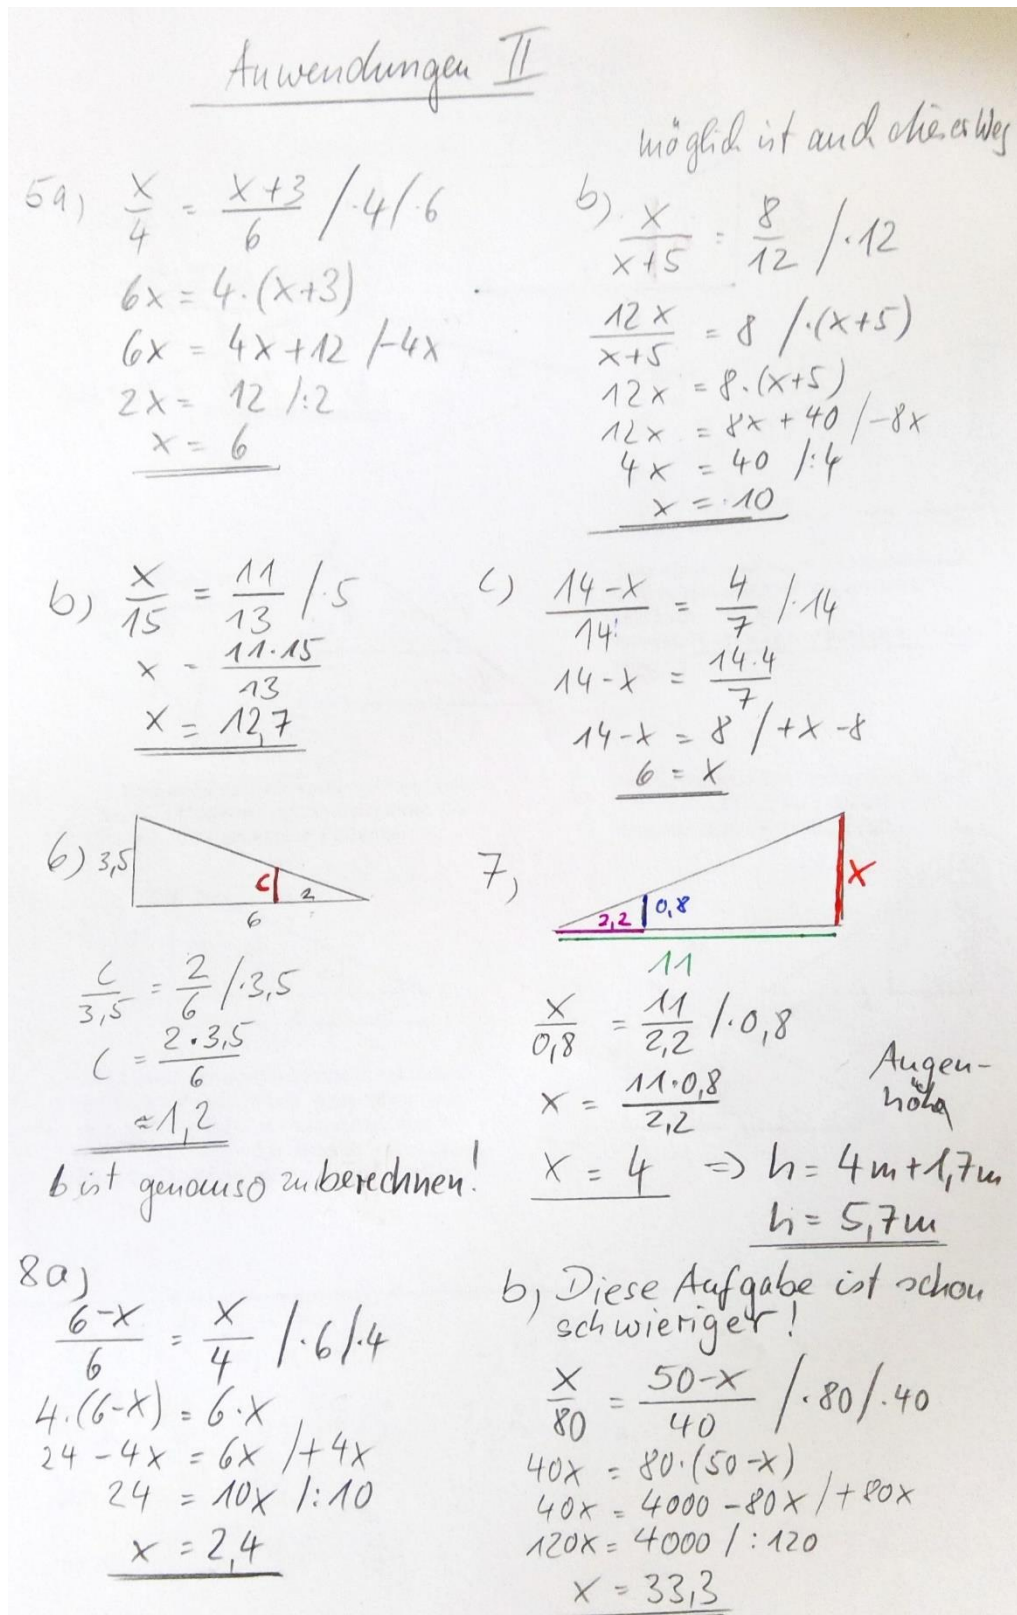 Anwendungen II
möglich ist auch dieser Weg
5a) x/4 = (x+3)/6 /·4/·6
6x = 4·(x+3)
6x = 4x+12 /-4x
2x = 12 /:2
x = 6
b) x/(x+5) = 8/12 /·12
12x/(x+5) = 8 /·(x+5)
12x = 8·(x+5)
12x = 8x + 40 /-8x
4x = 40 /:4
x = 10
b) x/15 = 11/13 /·5
x = 11·15/13
x = 12,7
c) (14-x)/14 = 4/7 /·14
14-x = 14·4/7
14-x = 8 /+x -8
6 = x
6) 3,5
c
2
6
c/3,5 = 2/6 /·3,5
c = 2·3,5/6
≈1,2
b ist genauso zu berechnen!
7)
x
2,2
0,8
11
x/0,8 = 11/2,2 /·0,8
x = 11·0,8/2,2
Augen-
höhe
x = 4 => h = 4m+1,7m
h = 5,7m
8a)
(6-x)/6 = x/4 /·6/·4
4·(6-x) = 6·x
24 - 4x = 6x /+4x
24 = 10x /:10
x = 2,4
b) Diese Aufgabe ist schon
schwieriger!
x/80 = (50-x)/40 /·80/·40
40x = 80·(50-x)
40x = 4000 - 80x /+80x
120x = 4000 /:120
x = 33,3